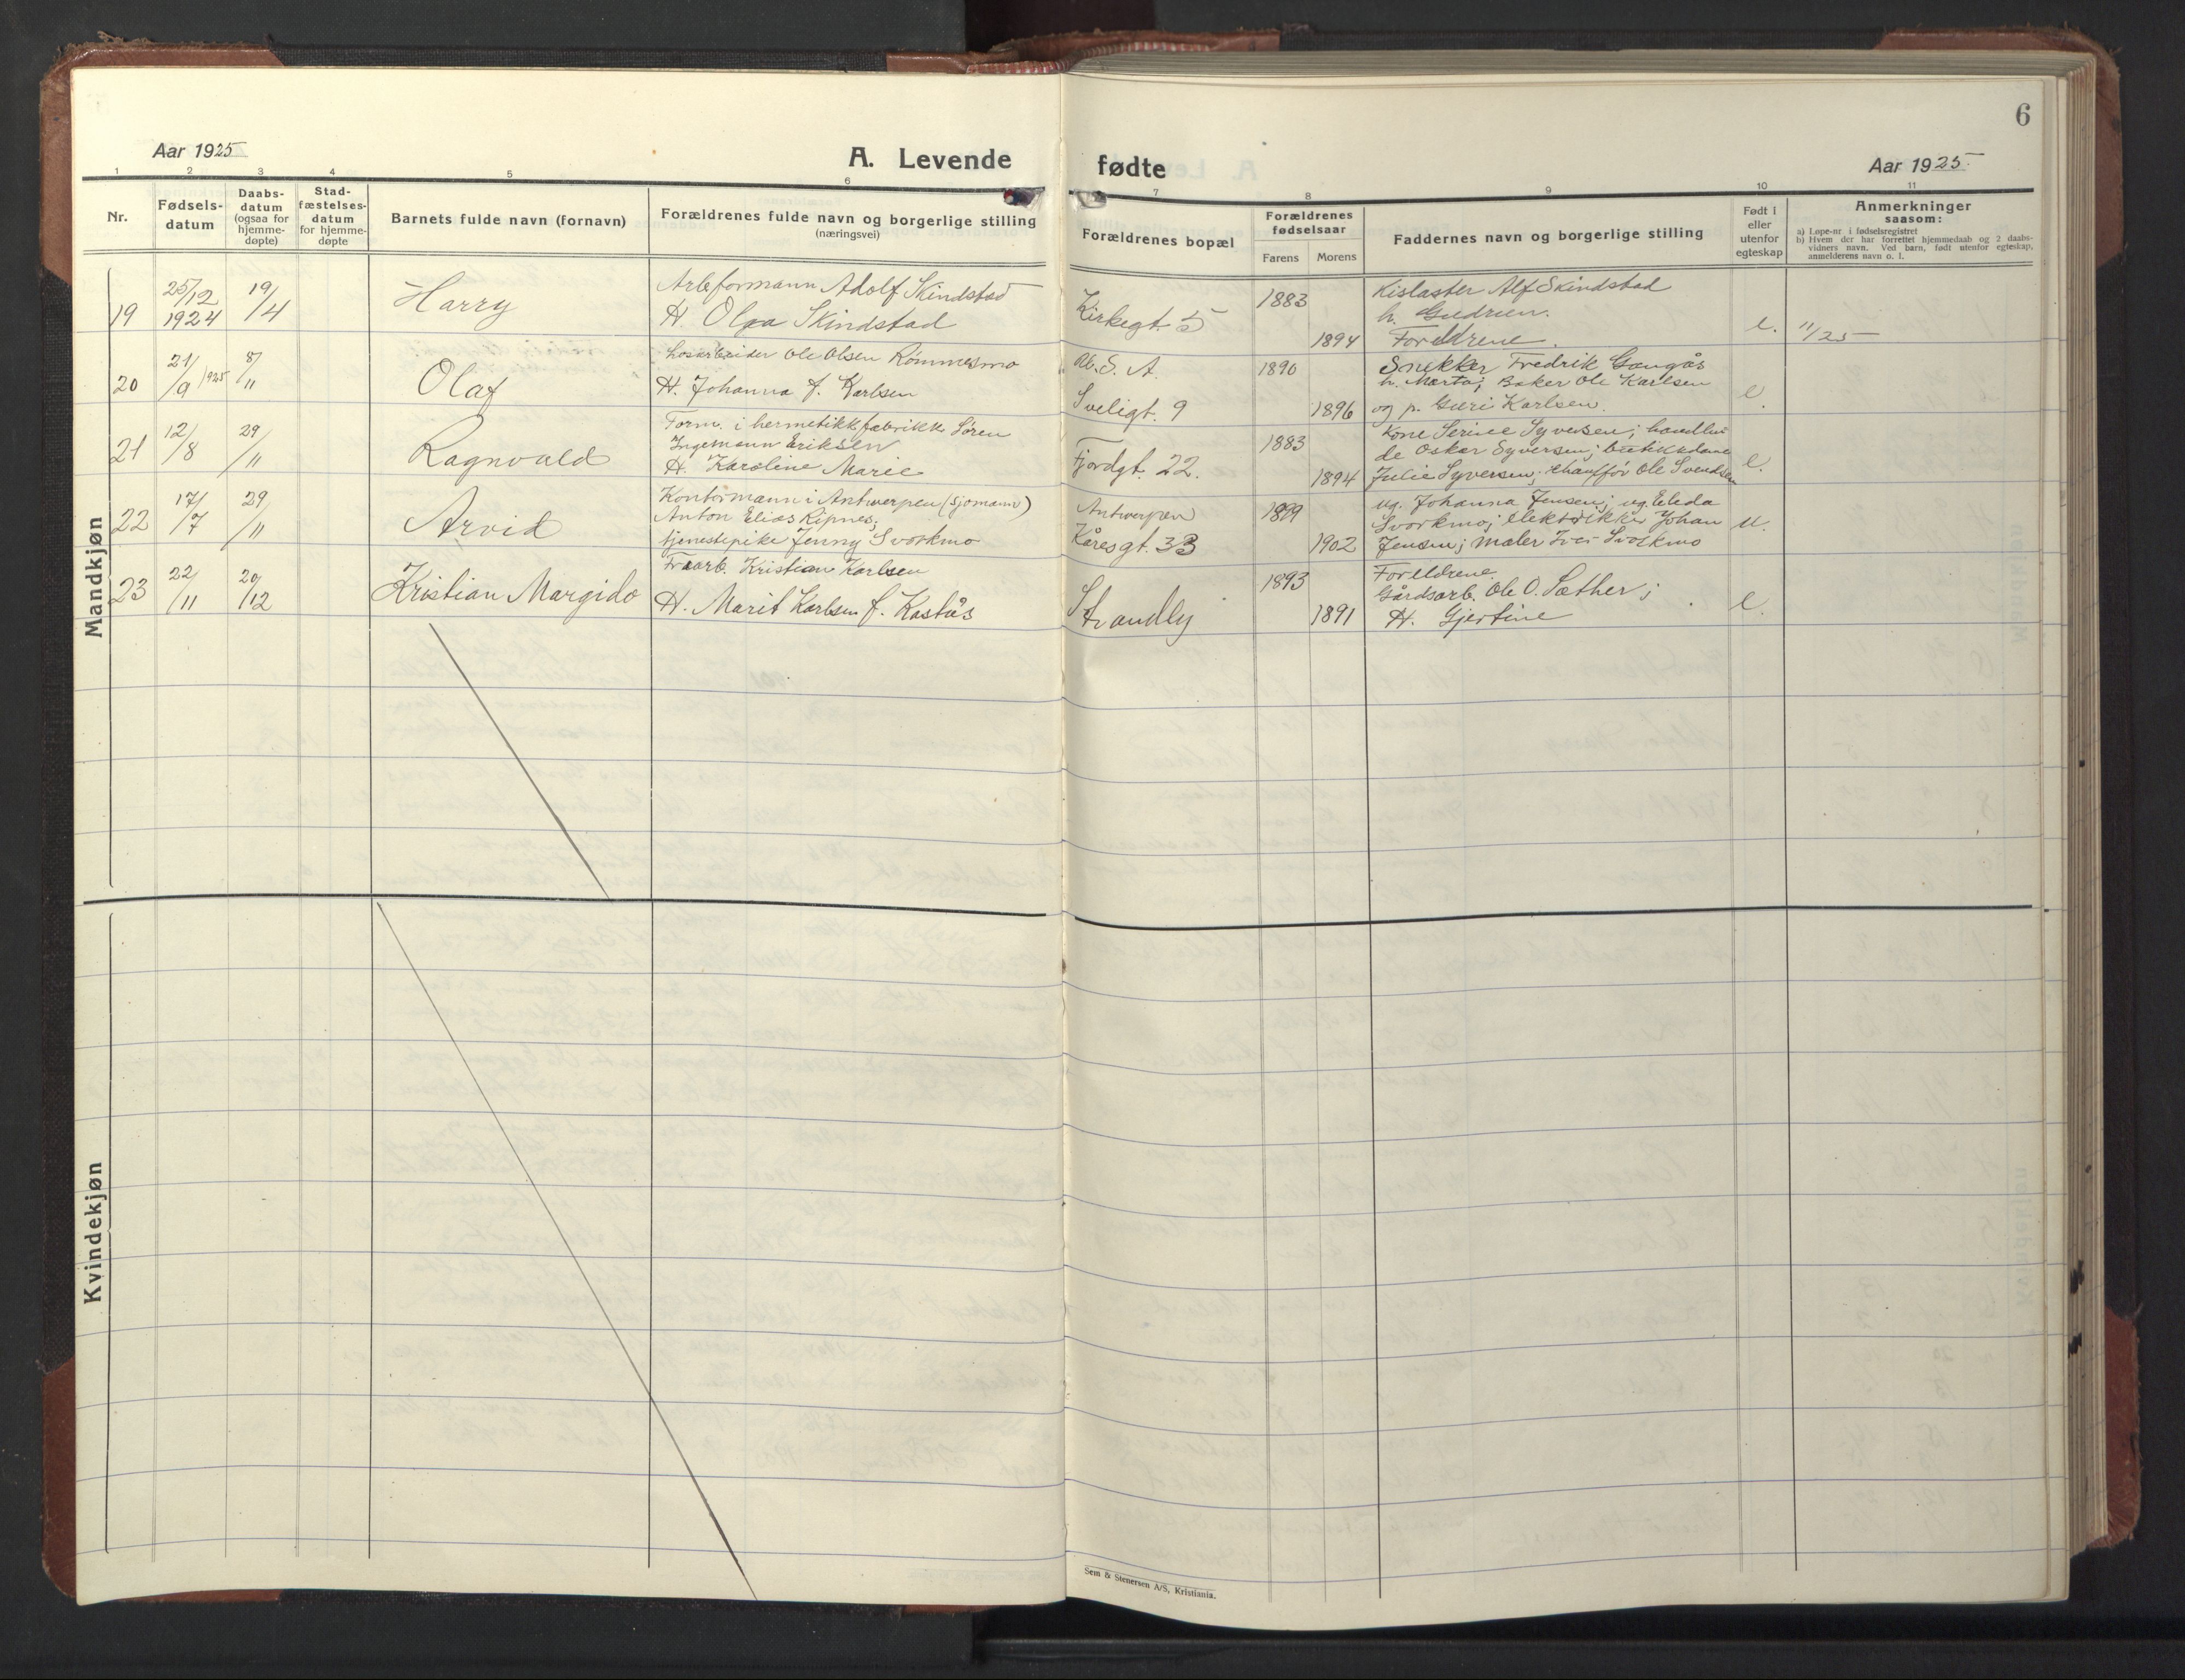 6
Aar 1925
A. Levende
fødte
Aar 1925.
1 2 3 4 5 6 7 8 9 10 11
Nr.
Fødsels-
datum
Daabs-
datum
(ogsaa for
hjemme-
døpte)
Stad-
fæstelses-
datum
for hjemme-
døpte
Barnets fulde navn (fornavn)
Forældrenes fulde navn og borgerlige stilling
(næringsvei)
Forældrenes bopæl
Forældrenes
fødselsaar
Farens Morens
Faddernes navn og borgerlige stilling
Født i
eller
utenfor
egteskap
Anmerkninger
saasom:
a) Løpe-nr. i fødselsregistret
b) Hvem der har forrettet hjemmedaab og 2 daabs-
vidners navn. Ved barn, født utenfor egteskap,
anmelderens navn o. l.
Mandkjøn
19
25/12
1924
19/4
Harry
Arbeformann Adolf Skindstad
H. Olga Skindstad
Kirkegt. 5
1883
1894
Kislaster Alf Skindstad
h. Gudrun.
Foreldrene.
e.
11/25
20
21/9 1925
8/"
Olaf
Losarbeider Ole Olsen Rømmesmo
H. Johanna f. Karlsen
Ab. S. A.
Sveligt. 9
1890
1896
Snekker Fredrik Gangås
h. Marta; Baker Ole Karlsen
og p. Guri Karlsen.
e.
21
12/8
29/"
Ragnvald
Form. i hermetikkfabrikk Søren
Ingemann Eriksen
H. Karoline Marie
Fjordgt. 22.
1883
1894
Kone Serine Syversen; handlen-
de Oskar Syversen; butikkdame
Julie Syversen; chauffør Ole Svendsen
e.
22
17/7
29/"
Arvid
Kontormann i Antwerpen (sjømann)
Anton Elias Ripnes;
tjenestepike Jenny Svorkmo
Antwerpen
Kåresgt. 33
1899
1902
ug. Johanna Jensen; ug. Elida
Svorkmo; elektrikker Johan
Jensen; maler Iver Svorkmo
u.
23
22/11
20/12
Kristian Margido
Frarb. Kristian Karlsen
H. Marit Karlsen f. Kastås
Strandly
1893
1891
Foreldrene.
Gårdsarb. Ole O. Sæther;
H. Gjertine
e.
Kvindekjøn
Sem & Stenersen A/S, Kristiania.